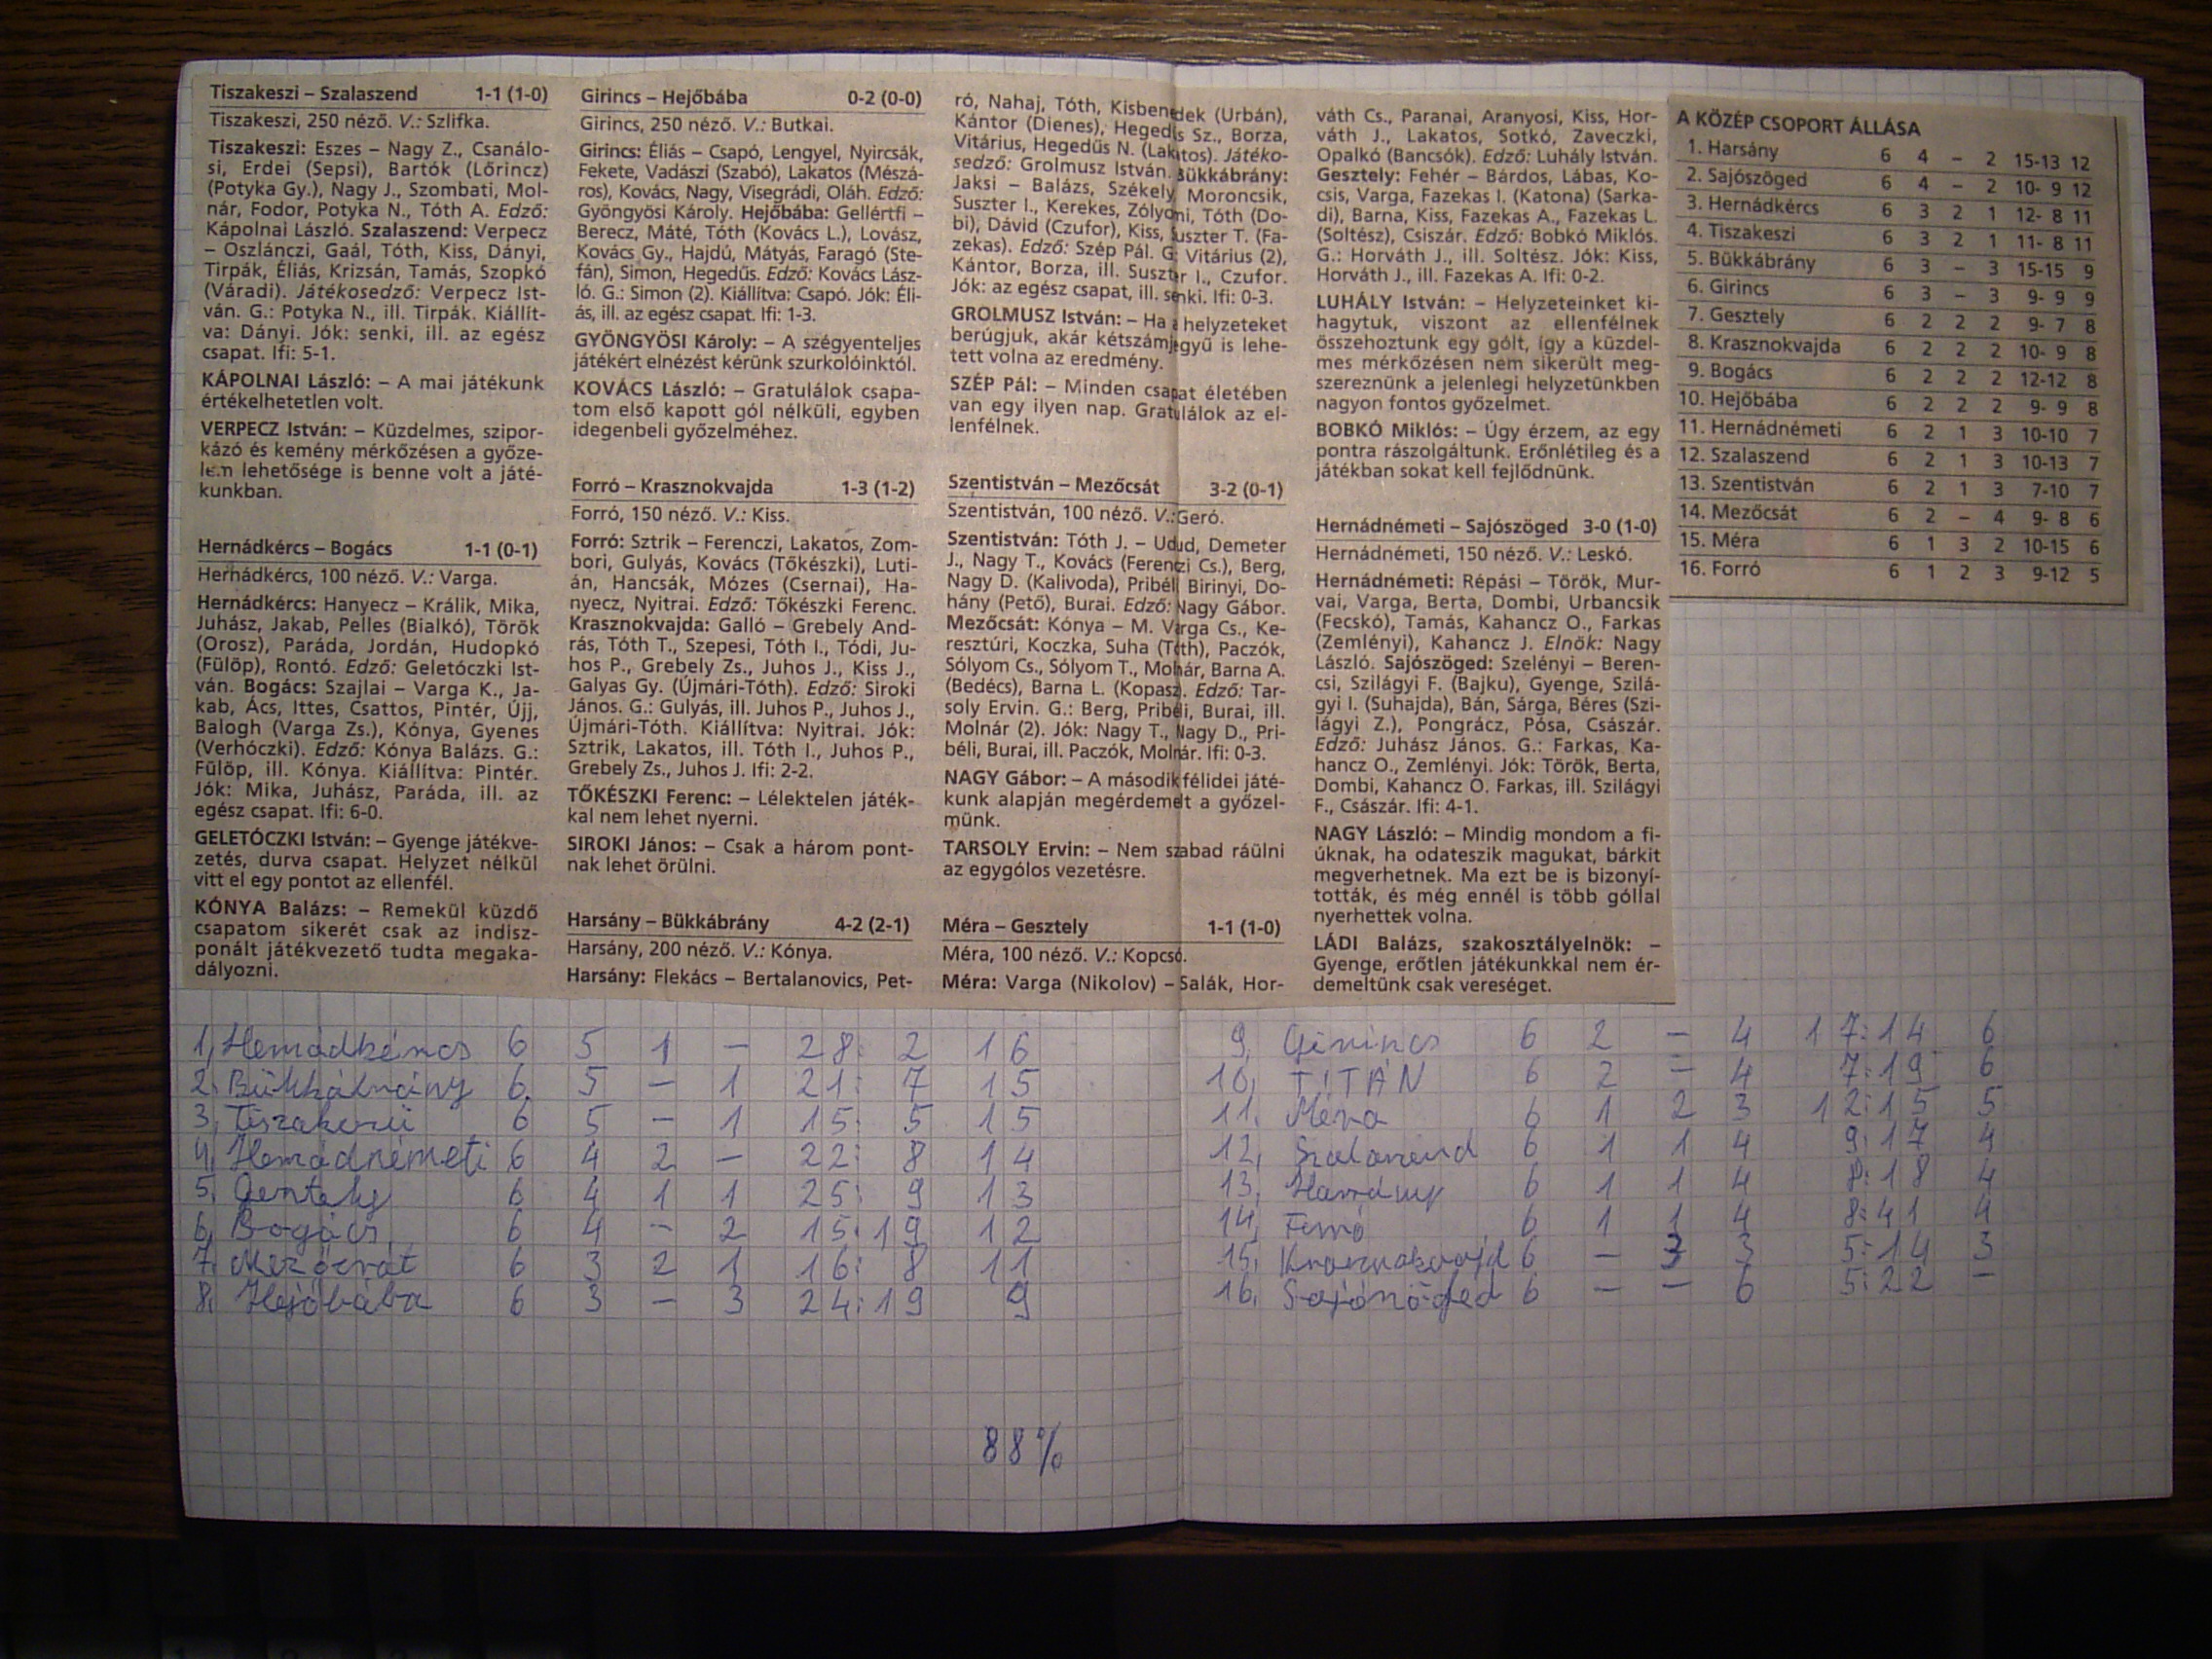 Tiszakeszi – Szalaszend 1-1 (1-0)
Tiszakeszi, 250 néző. V.: Szlifka.
Tiszakeszi: Eszes – Nagy Z., Csanálo-
si, Erdei (Sepsi), Bartók (Lőrincz)
(Potyka Gy.), Nagy J., Szombati, Mol-
nár, Fodor, Potyka N., Tóth A. Edző:
Kápolnai László. Szalaszend: Verpecz
– Oszlánczi, Gaál, Tóth, Kiss, Dányi,
Tirpák, Éliás, Krizsán, Tamás, Szopkó
(Váradi). Játékosedző: Verpecz Ist-
ván. G.: Potyka N., ill. Tirpák. Kiállít-
va: Dányi. Jók: senki, ill. az egész
csapat. Ifi: 5-1.
KÁPOLNAI László: – A mai játékunk
értékelhetetlen volt.
VERPECZ István: – Küzdelmes, szipor-
kázó és kemény mérkőzésen a győze-
lem lehetősége is benne volt a játé-
kunkban.
Hernádkércs – Bogács 1-1 (0-1)
Hernádkércs, 100 néző. V.: Varga.
Hernádkércs: Hanyecz – Králik, Mika,
Juhász, Jakab, Pelles (Bialkó), Török
(Orosz), Paráda, Jordán, Hudopkó
(Fülöp), Rontó. Edző: Geletóczki Ist-
ván. Bogács: Szajlai – Varga K., Ja-
kab, Ács, Ittes, Csattos, Pintér, Újj,
Balogh (Varga Zs.), Kónya, Gyenes
(Verhóczki). Edző: Kónya Balázs. G.:
Fülöp, ill. Kónya. Kiállítva: Pintér.
Jók: Mika, Juhász, Paráda, ill. az
egész csapat. Ifi: 6-0.
GELETÓCZKI István: – Gyenge játékve-
zetés, durva csapat. Helyzet nélkül
vitt el egy pontot az ellenfél.
KÓNYA Balázs: – Remekül küzdő
csapatom sikerét csak az indisz-
ponált játékvezető tudta megaka-
dályozni.
Girincs – Hejőbába 0-2 (0-0)
Girincs, 250 néző. V.: Butkai.
Girincs: Éliás – Csapó, Lengyel, Nyircsák,
Fekete, Vadászi (Szabó), Lakatos (Mészá-
ros), Kovács, Nagy, Visegrádi, Oláh. Edző:
Gyöngyösi Károly. Hejőbába: Gellértfi –
Berecz, Máté, Tóth (Kovács L.), Lovász,
Kovács Gy., Hajdú, Mátyás, Faragó (Ste-
fán), Simon, Hegedűs. Edző: Kovács Lász-
ló. G.: Simon (2). Kiállítva: Csapó. Jók: Éli-
ás, ill. az egész csapat. Ifi: 1-3.
GYÖNGYÖSI Károly: – A szégyenteljes
játékért elnézést kérünk szurkolóinktól.
KOVÁCS László: – Gratulálok csapa-
tom első kapott gól nélküli, egyben
idegenbeli győzelméhez.
Forró – Krasznokvajda 1-3 (1-2)
Forró, 150 néző. V.: Kiss.
Forró: Sztrik – Ferenczi, Lakatos, Zom-
bori, Gulyás, Kovács (Tőkészki), Luti-
án, Hancsák, Mózes (Csernai), Ha-
nyecz, Nyitrai. Edző: Tőkészki Ferenc.
Krasznokvajda: Galló – Grebely And-
rás, Tóth T., Szepesi, Tóth I., Tódi, Ju-
hos P., Grebely Zs., Juhos J., Kiss J.,
Galyas Gy. (Újmári-Tóth). Edző: Siroki
János. G.: Gulyás, ill. Juhos P., Juhos J.,
Újmári-Tóth. Kiállítva: Nyitrai. Jók:
Sztrik, Lakatos, ill. Tóth I., Juhos P.,
Grebely Zs., Juhos J. Ifi: 2-2.
TŐKÉSZKI Ferenc: – Lélektelen játék-
kal nem lehet nyerni.
SIROKI János: – Csak a három pont-
nak lehet örülni.
Harsány – Bükkábrány 4-2 (2-1)
Harsány, 200 néző. V.: Kónya.
Harsány: Flekács – Bertalanovics, Pet-
ró, Nahaj, Tóth, Kisbenedek (Urbán),
Kántor (Dienes), Hegedűs Sz., Borza,
Vitárius, Hegedűs N. (Lakatos). Játéko-
sedző: Grolmusz István. Bükkábrány:
Jaksi – Balázs, Székely, Moroncsik,
Suszter I., Kerekes, Zólyomi, Tóth (Do-
bi), Dávid (Czufor), Kiss, Suszter T. (Fa-
zekas). Edző: Szép Pál. G. Vitárius (2),
Kántor, Borza, ill. Suszter I., Czufor.
Jók: az egész csapat, ill. senki. Ifi: 0-3.
GROLMUSZ István: – Ha a helyzeteket
berúgjuk, akár kétszámjegyű is lehe-
tett volna az eredmény.
SZÉP Pál: – Minden csapat életében
van egy ilyen nap. Gratulálok az el-
lenfélnek.
Szentistván – Mezőcsát 3-2 (0-1)
Szentistván, 100 néző. V.: Geró.
Szentistván: Tóth J. – Udud, Demeter
J., Nagy T., Kovács (Ferenczi Cs.), Berg,
Nagy D. (Kalivoda), Pribéli, Birinyi, Do-
hány (Pető), Burai. Edző: Nagy Gábor.
Mezőcsát: Kónya – M. Varga Cs., Ke-
resztúri, Koczka, Suha (Tóth), Paczók,
Sólyom Cs., Sólyom T., Molnár, Barna A.
(Bedécs), Barna L. (Kopasz). Edző: Tar-
soly Ervin. G.: Berg, Pribéli, Burai, ill.
Molnár (2). Jók: Nagy T., Nagy D., Pri-
béli, Burai, ill. Paczók, Molnár. Ifi: 0-3.
NAGY Gábor: – A második félidei játé-
kunk alapján megérdemelt a győzel-
münk.
TARSOLY Ervin: – Nem szabad ráülni
az egygólos vezetésre.
Méra – Gesztely 1-1 (1-0)
Méra, 100 néző. V.: Kopcsó.
Méra: Varga (Nikolov) – Salák, Hor-
váth Cs., Paranai, Aranyosi, Kiss, Hor-
váth J., Lakatos, Sotkó, Zaveczki,
Opalkó (Bancsók). Edző: Luhály István.
Gesztely: Fehér – Bárdos, Lábas, Ko-
csis, Varga, Fazekas I. (Katona) (Sarka-
di), Barna, Kiss, Fazekas A., Fazekas L.
(Soltész), Csiszár. Edző: Bobkó Miklós.
G.: Horváth J., ill. Soltész. Jók: Kiss,
Horváth J., ill. Fazekas A. Ifi: 0-2.
LUHÁLY István: – Helyzeteinket ki-
hagytuk, viszont az ellenfélnek
összehoztunk egy gólt, így a küzdel-
mes mérkőzésen nem sikerült meg-
szereznünk a jelenlegi helyzetünkben
nagyon fontos győzelmet.
BOBKÓ Miklós: – Úgy érzem, az egy
pontra rászolgáltunk. Erőnlétileg és a
játékban sokat kell fejlődnünk.
Hernádnémeti – Sajószöged 3-0 (1-0)
Hernádnémeti, 150 néző. V.: Leskó.
Hernádnémeti: Répási – Török, Mur-
vai, Varga, Berta, Dombi, Urbancsik
(Fecskó), Tamás, Kahancz O., Farkas
(Zemlényi), Kahancz J. Elnök: Nagy
László. Sajószöged: Szelényi – Beren-
csi, Szilágyi F. (Bajku), Gyenge, Szilá-
gyi I. (Suhajda), Bán, Sárga, Béres (Szi-
lágyi Z.), Pongrácz, Pósa, Császár.
Edző: Juhász János. G.: Farkas, Ka-
hancz O., Zemlényi. Jók: Török, Berta,
Dombi, Kahancz O. Farkas, ill. Szilágyi
F., Császár. Ifi: 4-1.
NAGY László: – Mindig mondom a fi-
úknak, ha odateszik magukat, bárkit
megverhetnek. Ma ezt be is bizonyí-
tották, és még ennél is több góllal
nyerhettek volna.
LÁDI Balázs, szakosztályelnök: –
Gyenge, erőtlen játékunkkal nem ér-
demeltünk csak vereséget.
A KÖZÉP CSOPORT ÁLLÁSA
1. Harsány 6 4 – 2 15-13 12
2. Sajószöged 6 4 – 2 10- 9 12
3. Hernádkércs 6 3 2 1 12- 8 11
4. Tiszakeszi 6 3 2 1 11- 8 11
5. Bükkábrány 6 3 – 3 15-15 9
6. Girincs 6 3 – 3 9- 9 9
7. Gesztely 6 2 2 2 9- 7 8
8. Krasznokvajda 6 2 2 2 10- 9 8
9. Bogács 6 2 2 2 12-12 8
10. Hejőbába 6 2 2 2 9- 9 8
11. Hernádnémeti 6 2 1 3 10-10 7
12. Szalaszend 6 2 1 3 10-13 7
13. Szentistván 6 2 1 3 7-10 7
14. Mezőcsát 6 2 – 4 9- 8 6
15. Méra 6 1 3 2 10-15 6
16. Forró 6 1 2 3 9-12 5
1, Hernádkércs 6 5 1 – 28: 2 16
2. Bükkábrány 6 5 – 1 21: 7 15
3, Tiszakeszi 6 5 – 1 15: 5 15
4, Hernádnémeti 6 4 2 – 22: 8 14
5, Gesztely 6 4 1 1 25: 9 13
6, Bogács 6 4 – 2 15:19 12
7. Mezőcsát 6 3 2 1 16: 8 11
8, Hejőbába 6 3 – 3 24:19 9
9, Girincs 6 2 – 4 17:14 6
10, TITÁN 6 2 – 4 7:19 6
11. Méra 6 1 2 3 12:15 5
12, Szalaszend 6 1 1 4 9:17 4
13, Harsány 6 1 1 4 8:18 4
14, Forró 6 1 1 4 8:41 4
15, Krasznokvajd 6 – 3 3 5:14 3
16, Sajószöged 6 – – 6 5:22 –
88%